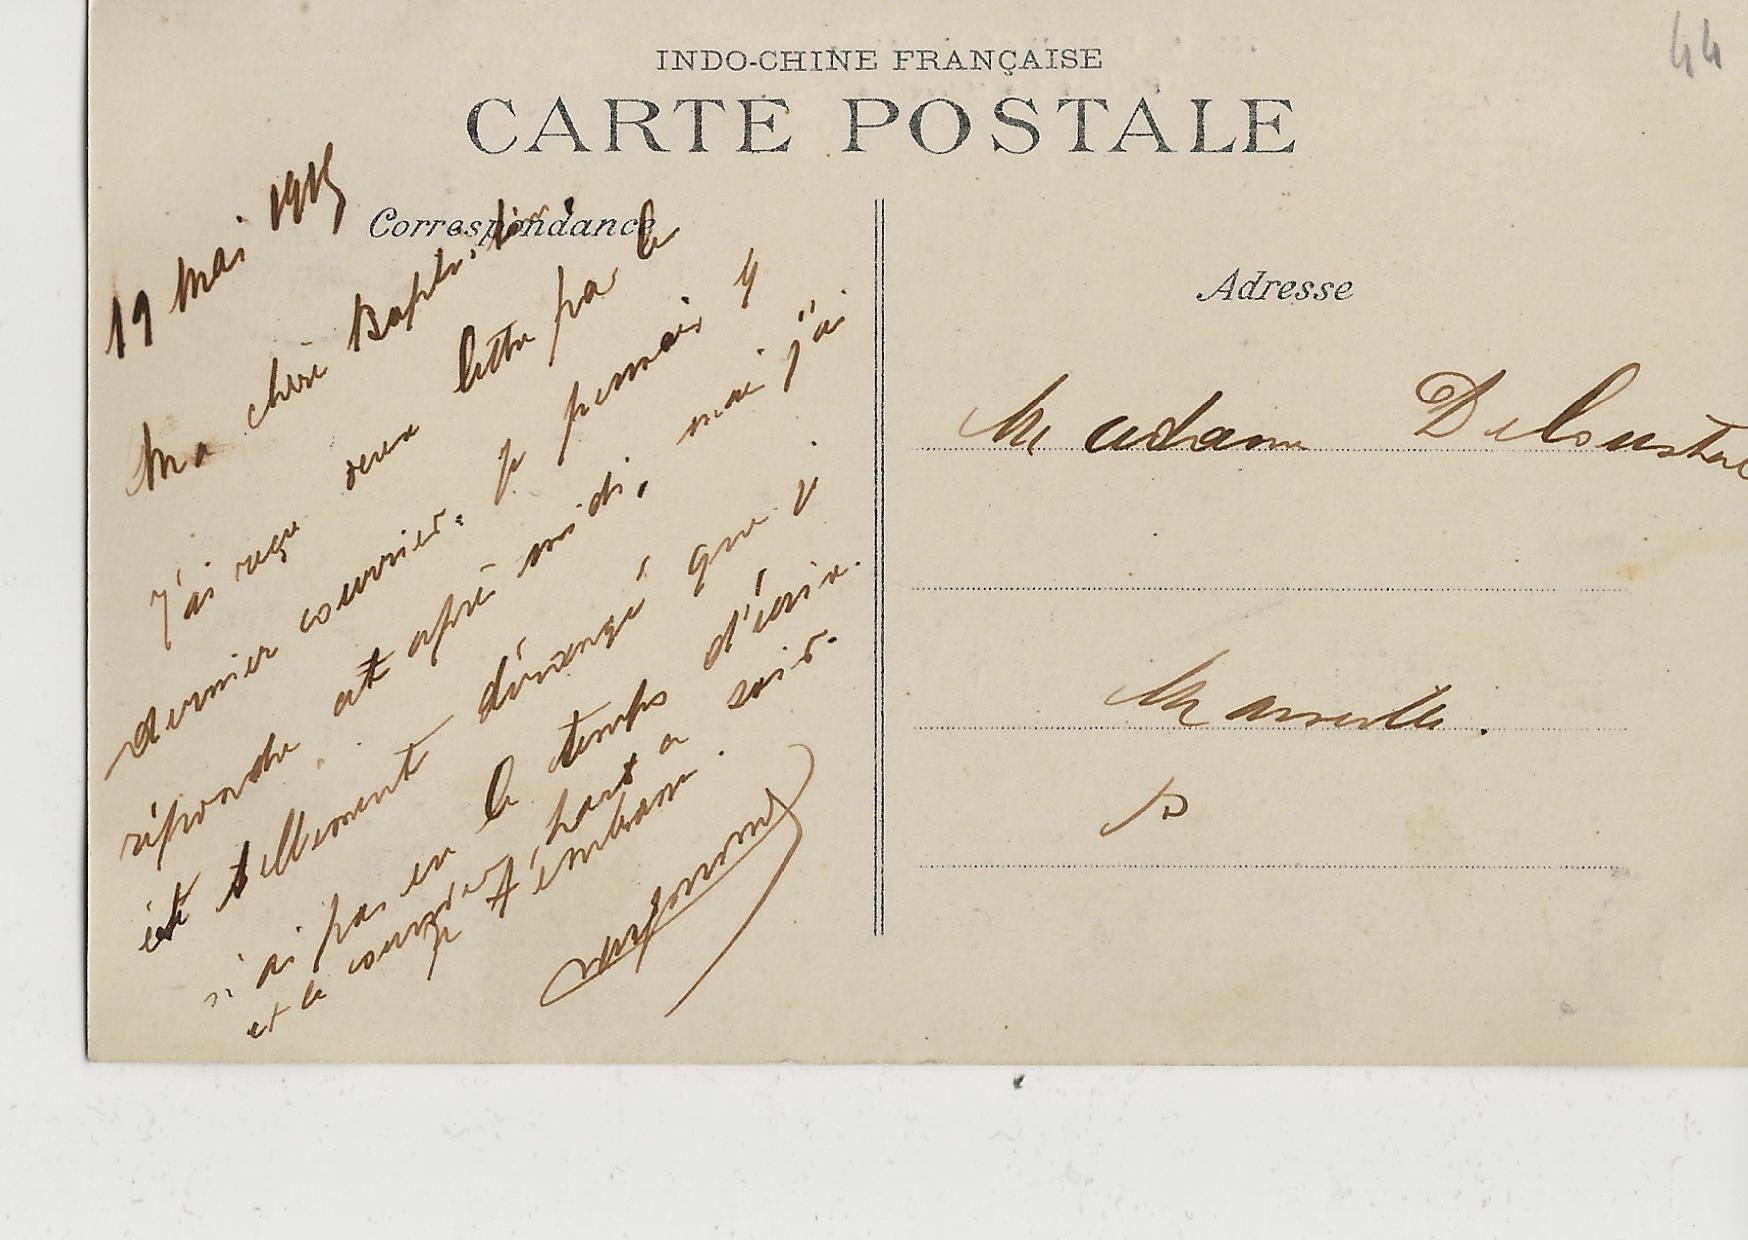 44
INDO-CHINE FRANÇAISE
CARTE POSTALE
Correspondance
19 Mai 1915
Ma chère Baptistine
J'ai reçu deux lettre par le
dernier courrier. je pensais y
répondre cet après midi, mai j'ai
été tellement dérangé que je
n'ai pas eu le temps d'écrire.
et le courrier part ce soir.
je t'embrasse.
Adresse
Madame
Marseille.